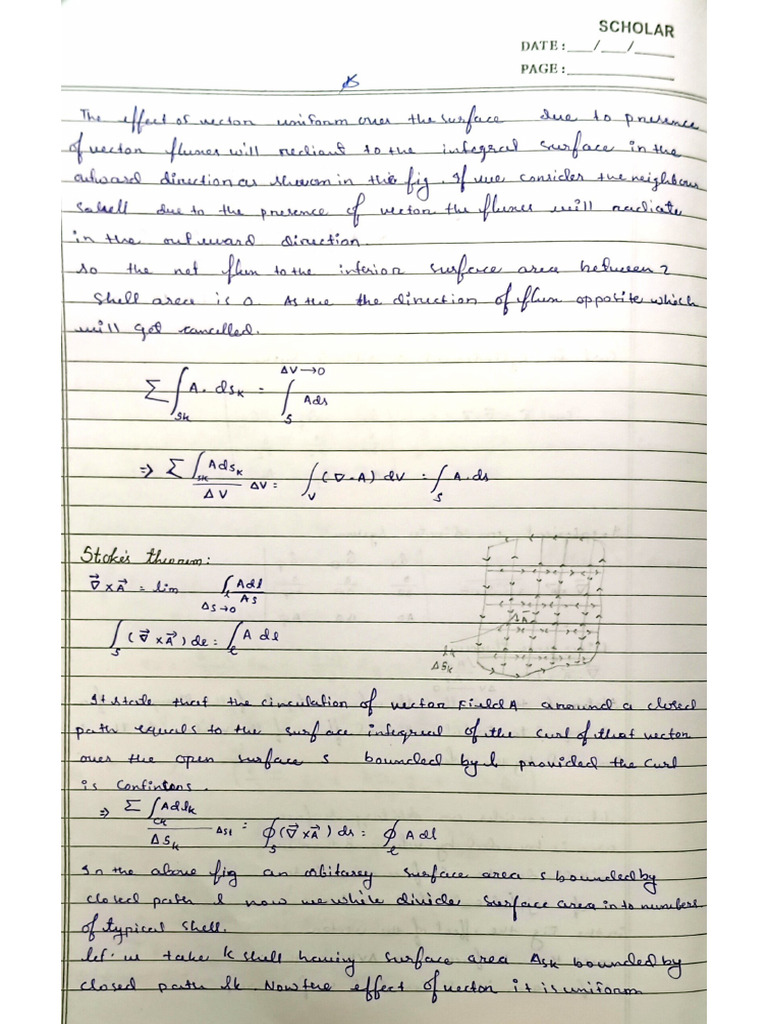 SCHOLAR
DATE:___/___/____
PAGE:____________
The effect of vector uniform over the surface due to presence
of vector fluxes will rediant to the integral surface in the
outward direction as shown in the fig. If we consider the neighbour
shell due to the presence of vector the fluxes will radiate
in the outward direction.
so the net flux to the interior surface area between 2
shell area is 0. As the the direction of flux opposite which
will got cancelled.
∑ ∫_{Sk} A. dS_k = ∫_S^{ΔV→0} Ads
=> ∑ ∫_{Sk} Ads_k / ΔV ΔV = ∫_V (∇.A) dV = ∫_S A.ds
Stoke's theorem:
∇⃗ × A⃗ = lim_{ΔS→0} ∫_l Adl / ΔS
∫_S (∇⃗ × A⃗) de = ∫_l A dl
ΔS_k
It state that the circulation of vector Field A around a closed
path equals to the surface integral of the curl of that vector
over the open surface s bounded by l provided the curl
is
=> ∑ ∫_{Ck} Adl_k / ΔS_k ΔS_k = ∮_S (∇⃗ × A⃗) ds = ∮_l A dl
In the above fig an abitarey surface area s bounded by
closed path l now we while divide surface area in to numbers
of typical shell.
let us take k shell having surface area Δsk bounded by
closed path lk. Now the effect of vector it is uniform